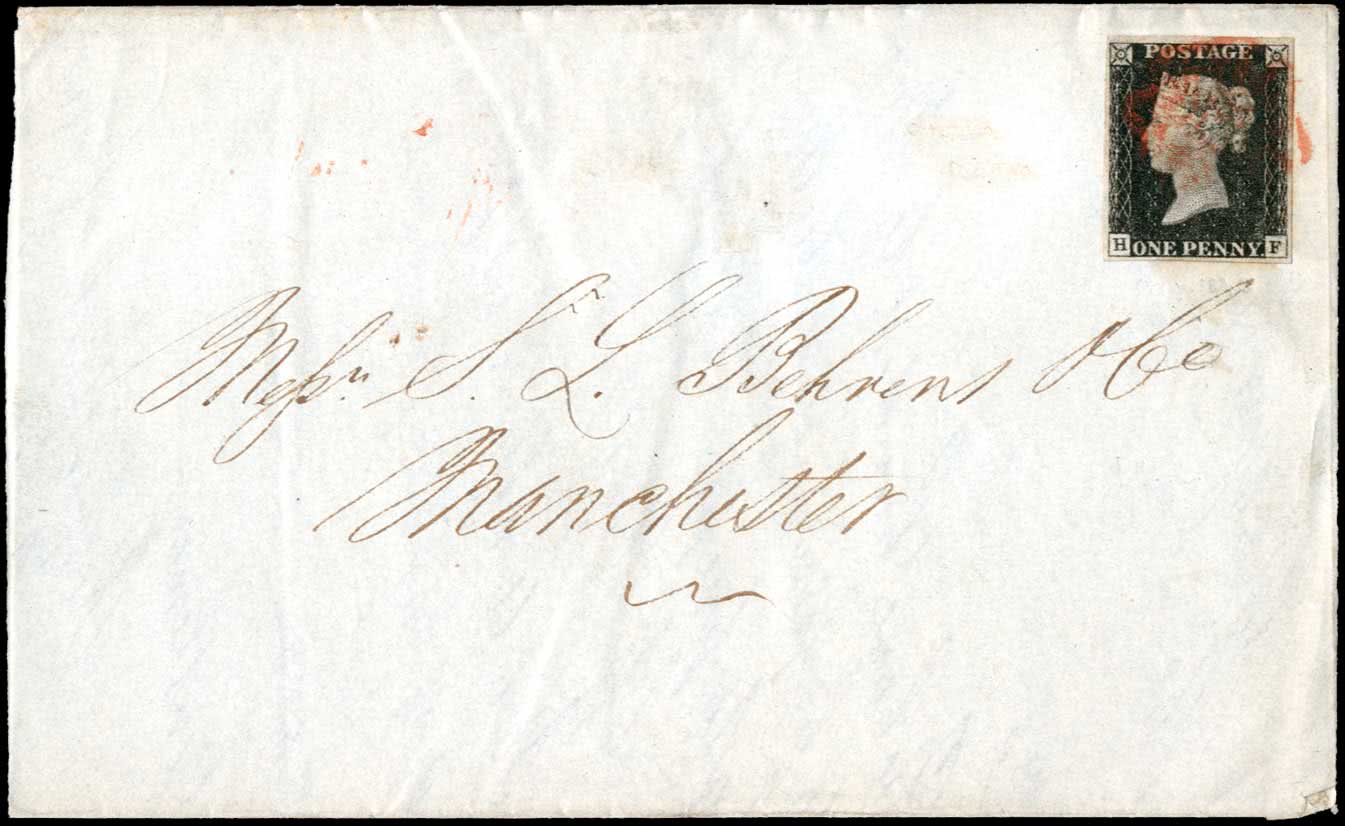 POSTAGE
H ONE PENNY. F
Messrs. S. L. Behrens & Co
Manchester